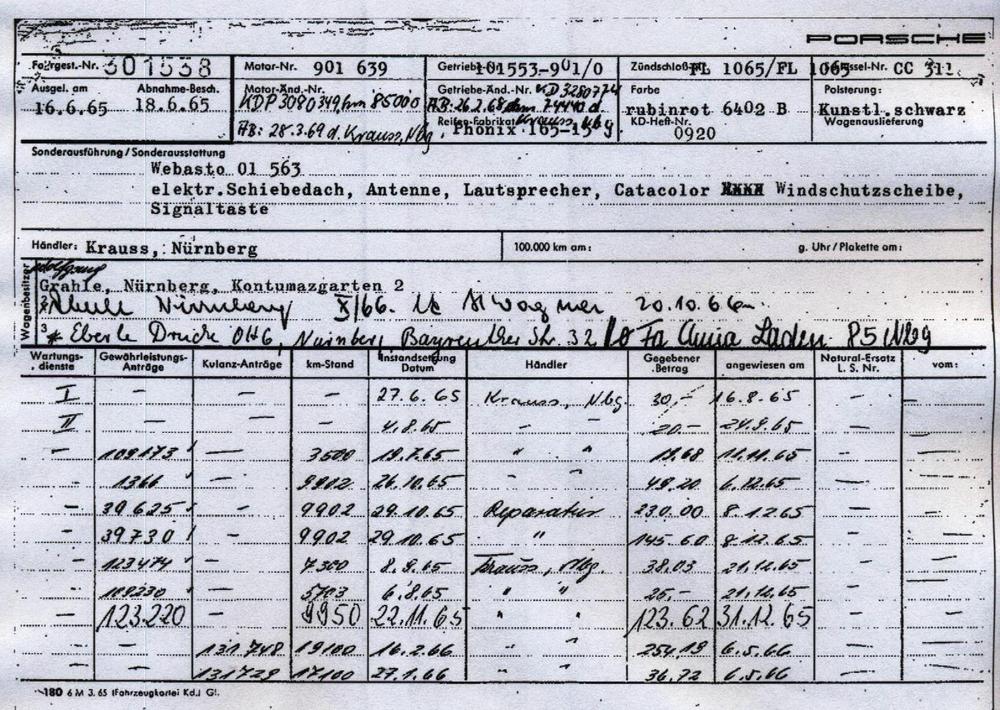 PORSCHE
Fahrgest.-Nr. 301538 Motor-Nr. 901 639 Getriebe 101553-901/0 Zündschloß FL 1065/FL 1065 Schlüssel-Nr. CC 311
Ausgel. am Abnahme-Besch. Motor-Änd.-Nr. Getriebe-Änd.-Nr. KD 3280774 Farbe Polsterung:
16.6.65 18.6.65 KDP 3080349, km 85000 AB: 26.2.68 km 74440 d. rubinrot 6402 B Kunstl.schwarz
AB: 28.3.69 d. Krauss, Nbg. Reifen-Fabrikat Krauss, Nbg KD-Heft-Nr. Wagenauslieferung
Phönix 165-15 0920
Sonderausführung / Sonderausstattung
Webasto 01 563
elektr.Schiebedach, Antenne, Lautsprecher, Catacolor Windschutzscheibe,
Signaltaste
Händler: Krauss, Nürnberg 100.000 km am: g. Uhr / Plakette am:
Wagenbesitzer
Wolfgang
Grahle, Nürnberg, Kontumazgarten 2
2 Nürnberg X/66. Wagner 20.10.66
3 * Eberle Druck OHG, Nürnberg, Bayreuther Str. 32 Fa Anna Laden 85 Nbg
Wartungsdienste Gewährleistungs-Anträge Kulanz-Anträge km-Stand Instandsetzung Datum Händler Gegebener Betrag angewiesen am Natural-Ersatz L. S. Nr. vom:
I — — — 27.6.65 Krauss, Nbg. 30,- 16.8.65 — —
II — — — 4.8.65 " " 20.- 24.9.65 — —
— 109173 — 3500 19.7.65 " " 11.68 11.11.65 — —
— 1366 — 9902 26.10.65 " " 49.20 6.12.65 — —
— 39625 — 9902 29.10.65 Reparatur 230.00 8.12.65 — —
— 39730 — 9902 29.10.65 " 145.60 8.12.65 — —
— 123474 — 7300 8.9.65 Krauss, Nbg. 38.03 21.12.65 — —
— 109230 — 5703 6.8.65 " " 26,- 21.12.65 — —
— 123220 — 9950 22.11.65 " " 123.62 31.12.65 — —
— 131.748 19100 16.2.66 " " 254.19 6.5.66 — —
— 131729 17100 27.1.66 " " 36.72 6.5.66 — —
180 6 M 3. 65 (Fahrzeugkartei Kd.) G!.